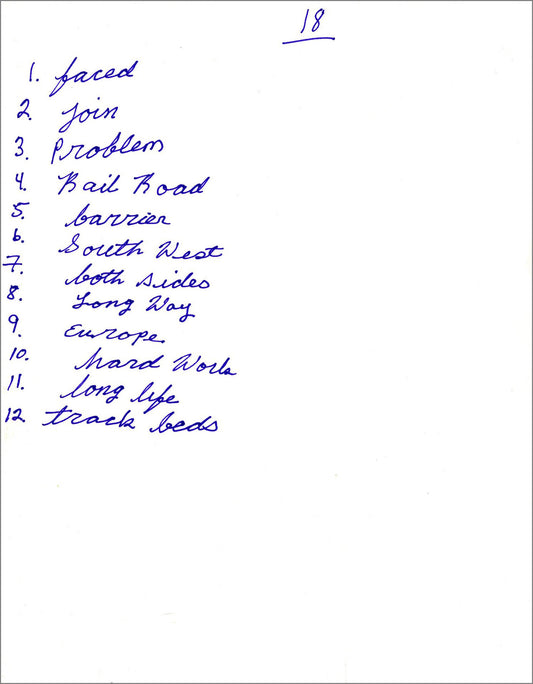 18
1. faced
2. join
3. Problem
4. Rail Road
5. barrier
6. South West
7. both sides
8. Long Way
9. Europe
10. hard Work
11. long life
12 track beds